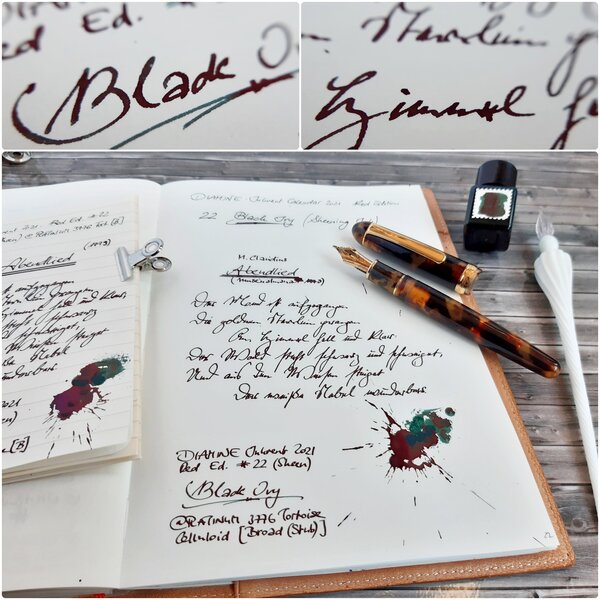 Red Ed. #22
Black
Sternlein
Himmel
2021 Red Ed #22
@PLATINUM 3776 [B]
Abendlied
ist aufgegangen
Sternlein prangen
hell und klar,
2021
[B]
DIAMINE Inkvent Calendar 2021 Red Edition
22 Black Ivy (Sheening Ink)
M. Claudius
Abendlied
Der Mond ist aufgegangen
Die goldnen Sternlein prangen
Am Himmel hell und klar.
Der Wald steht schwarz und schweiget,
Und aus den Wiesen steiget
Der weiße Nebel wunderbar.
DIAMINE Inkvent 2021
Red Ed. #22 (Sheen)
Black Ivy
@PLATINUM 3776 Tortoise
Celluloid [Broad (Stub)]
22